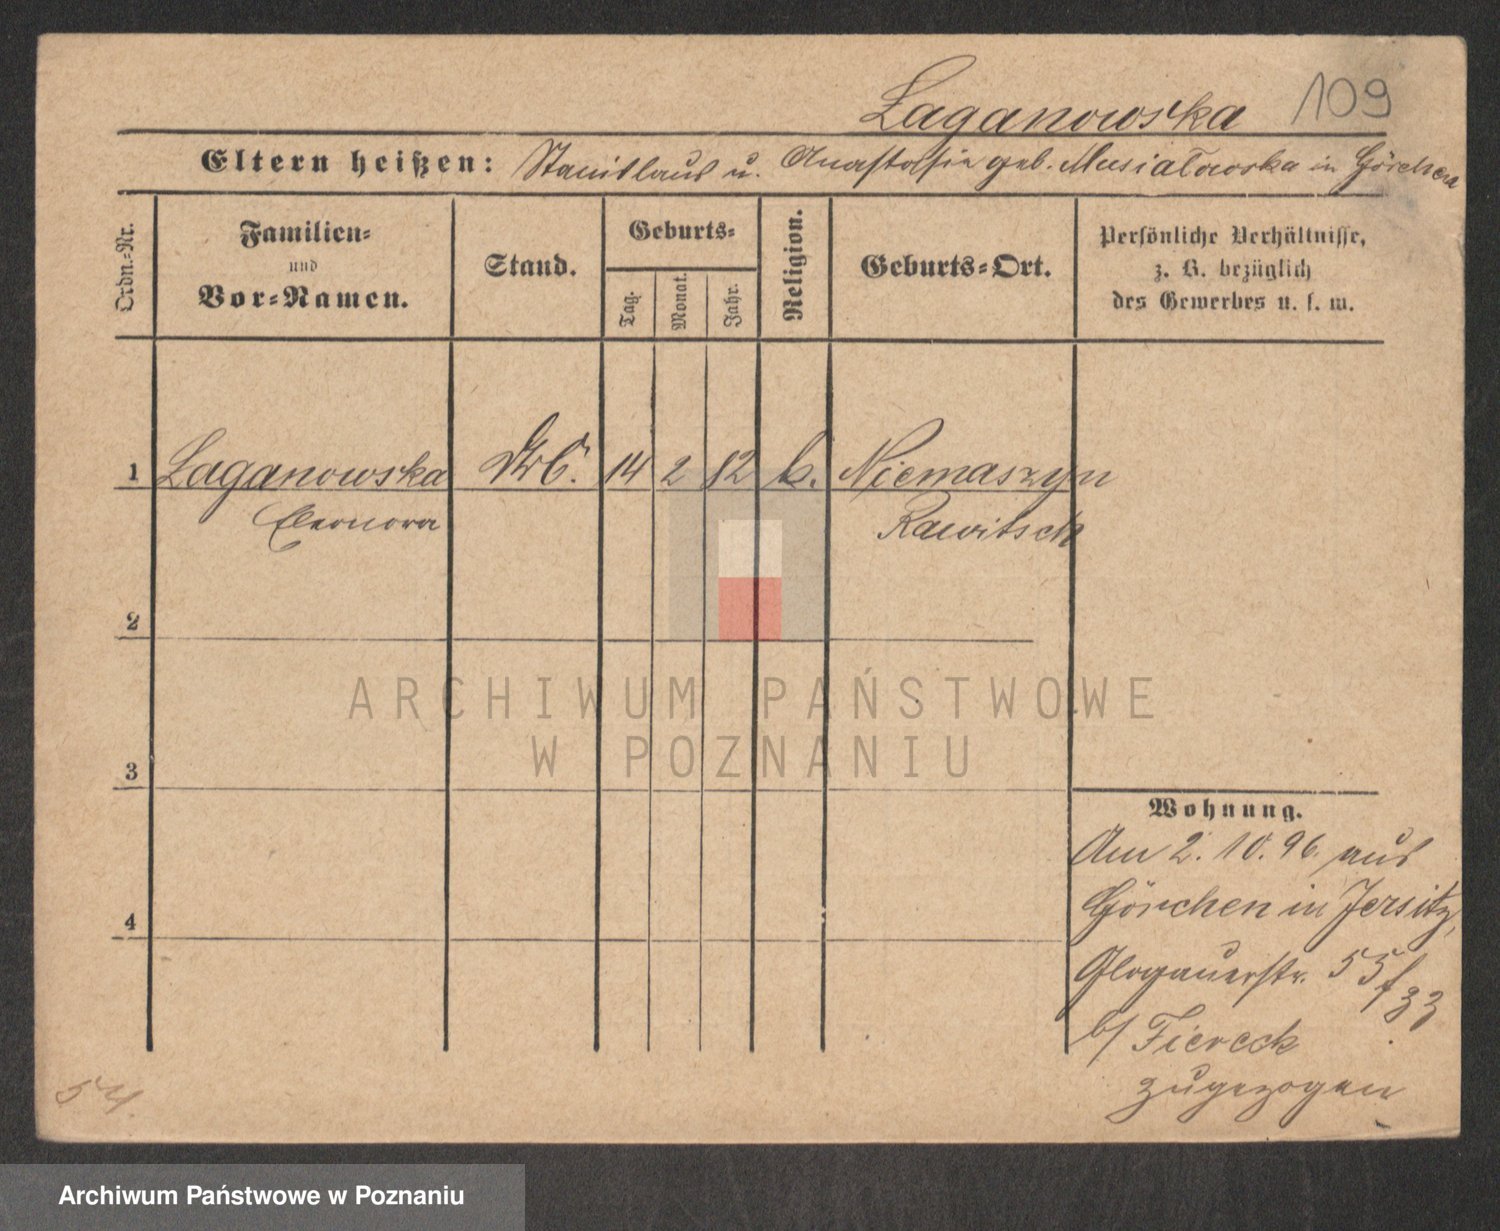 Laganowska 109
Eltern heißen: Stanislaus u. Anastasia geb. Musialowska in Görchen
Ordn.-Nr.
Familien-
und
Vor-Namen.
Stand.
Geburts-
Tag.
Monat.
Jahr.
Religion.
Geburts-Ort.
Persönliche Verhältnisse,
z. B. bezüglich
des Gewerbes u. s. w.
1 Laganowska 14 2 82 k. Niemaszyn
Eleonora Rawitsch
2
3
4
ARCHIWUM PAŃSTWOWE
W POZNANIU
Wohnung.
Am 2. 10. 96. aus
Görchen in Jersitz,
Glogauerstr. 55
b/ Fiereck
zugezogen
54.
Archiwum Państwowe w Poznaniu